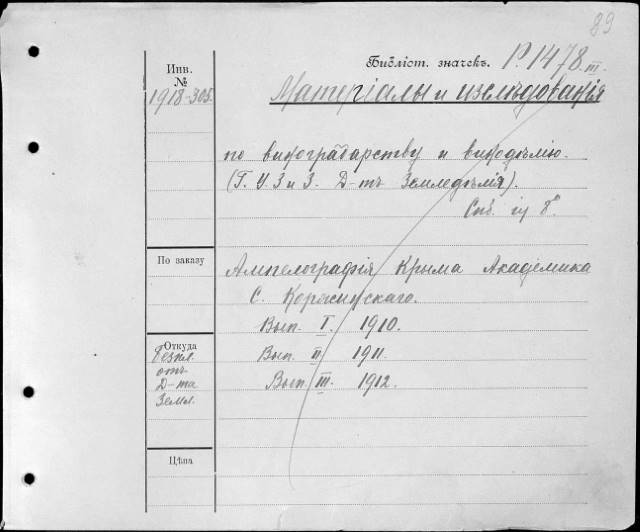 89
Библіот. значекъ. Р.1478 III.
Инв.
№
1918-305.
Матеріалы и изслѣдованія
по виноградарству и винодѣлію.
(Г. У. З. и З. Д-тъ Земледѣлія).
Спб. in 8°
По заказу
Ампелографія Крыма Академика
С. Коржинскаго.
Вып. I. 1910.
Откуда
Безпл.
отъ
Д-та
Земл.
Вып. II 1911.
Вып. III. 1912.
Цѣна